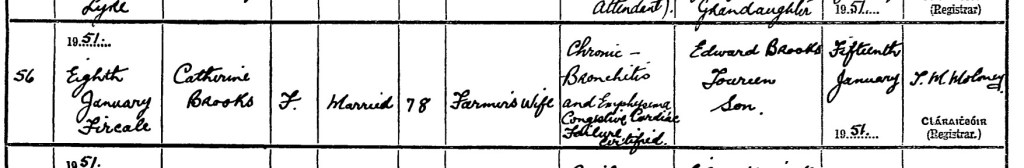 Lyre
Attendant).
Grandaughter
19.51.
(Registrar)
56
19.51.
Eighth
January
Fircale
Catherine
Brooks
F.
Married
78
Farmer's Wife
Chronic –
Bronchitis
and Emphysema
Congestive Cardiac
Failure
certified.
Edward Brooks
Toureen
Son.
Fifteenth
January
19.51.
T. M. Moloney
Cláraitheóir
(Registrar.)
19.51.